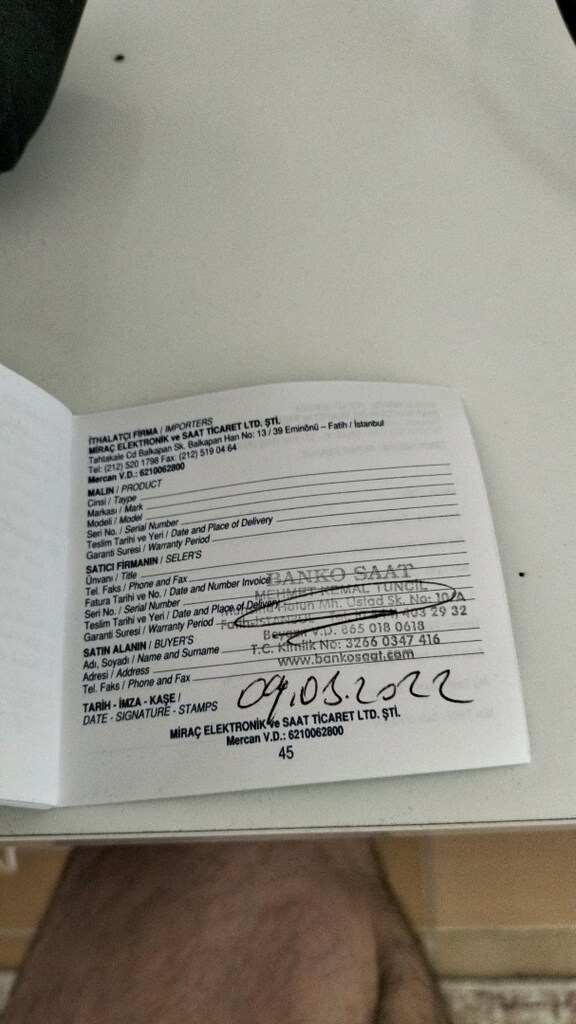 İTHALATÇI FİRMA / IMPORTERS
MİRAÇ ELEKTRONİK ve SAAT TİCARET LTD. ŞTİ.
Tahtakale Cd Balkapan Sk. Balkapan Han No: 13 / 39 Eminönü – Fatih / İstanbul
Tel: (212) 520 1798 Fax: (212) 519 04 64
Mercan V.D.: 6210062800
MALIN / PRODUCT
Cinsi / Taype
Markası / Mark
Modeli / Model
Seri No. / Serial Number
Teslim Tarihi ve Yeri / Date and Place of Delivery
Garanti Suresi / Warranty Period
SATICI FİRMANIN / SELER'S
Ünvanı / Title
Tel. Faks / Phone and Fax
Fatura Tarihi ve No. / Date and Number Invoice
Seri No. / Serial Number
Teslim Tarihi ve Yeri / Date and Place of Delivery
Garanti Suresi / Warranty Period
BANKO SAAT
MEHMET KEMAL TUNCİL
Hatun Mh. Üstad Sk. No: 10/A
403 29 32
V.D. 865 018 0618
T.C. Kimlik No: 3266 0347 416
www.bankosaat.com
SATIN ALANIN / BUYER'S
Adı, Soyadı / Name and Surname
Adresi / Address
Tel. Faks / Phone and Fax
TARİH - İMZA - KAŞE /
DATE - SIGNATURE - STAMPS
09.03.2022
MİRAÇ ELEKTRONİK ve SAAT TİCARET LTD. ŞTİ.
Mercan V.D.: 6210062800
45